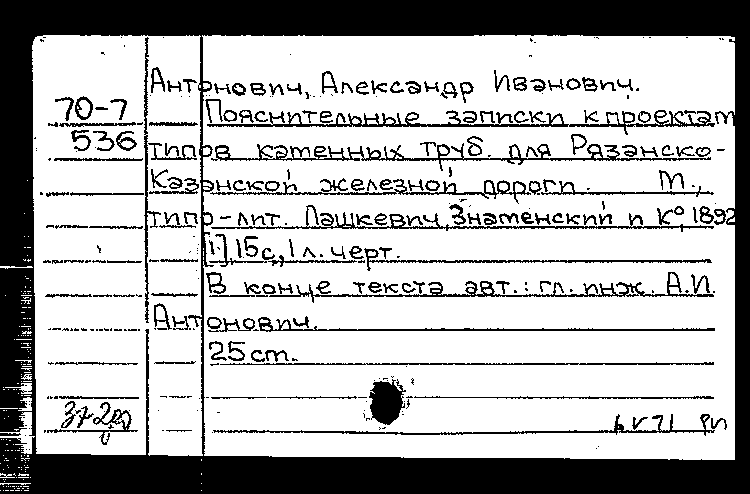 Антонович, Александр Иванович.
70-7 Пояснительные записки к проектам
536 типов каменных труб для Рязанско-
Казанской железной дороги. М.,
типо-лит. Пашкевич, Знаменский и К°, 1892
[1], 15 с., 1 л. черт.
В конце текста авт.: гл. инж. А.И.
Антонович.
25 cm.